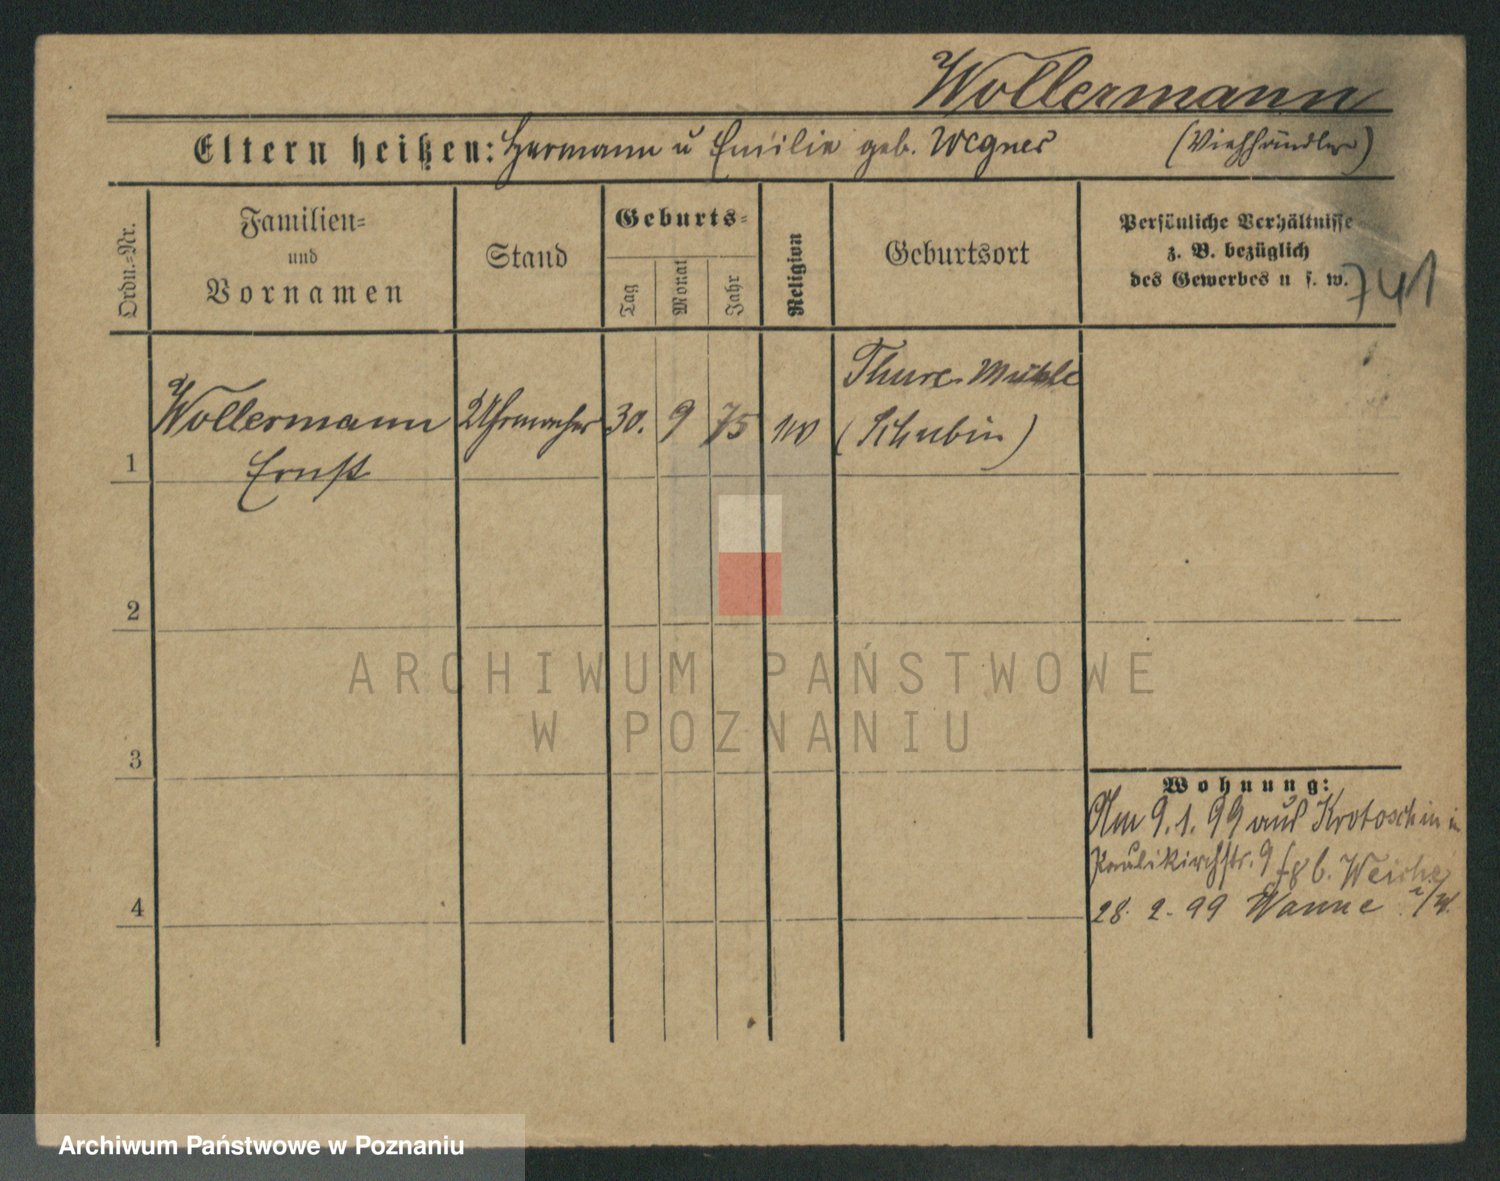 Wollermann
Eltern heißen: Hermann u Emilie geb. Wegner (Viehhändler)
Ordn.=Nr.
Familien=
und
Vornamen
Stand
Geburts=
Tag
Monat
Jahr
Religion
Geburtsort
Persönliche Verhältnisse
z. B. bezüglich
des Gewerbes u s. w.
741
Thure-Mühle
Wollermann Uhrmacher 30. 9 75 (Schubin)
1 Ernst
2
ARCHIWUM PAŃSTWOWE
W POZNANIU
3
Wohnung:
Am 9.1.99 aus Krotoschin in
Paulikirchstr. 9 b. Weiche
4 28. 2. 99 Wanne i/W.
Archiwum Państwowe w Poznaniu